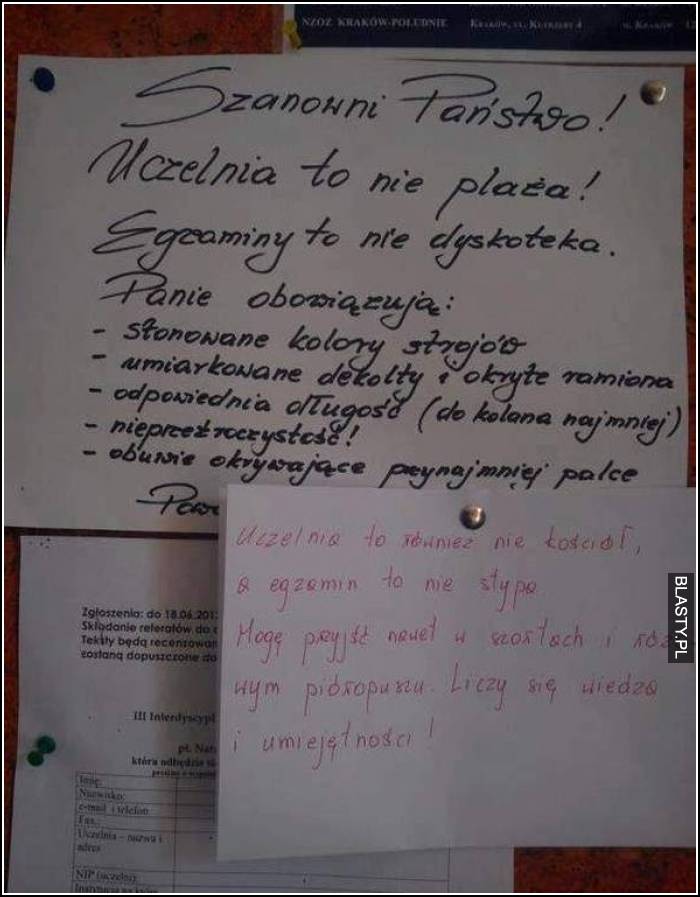 NZOZ KRAKÓW-POŁUDNIE
Szanowni Państwo!
Uczelnia to nie plaża!
Egzaminy to nie dyskoteka.
Panie obowiązują:
- stonowane kolory strojów
- umiarkowane dekolty i okryte ramiona
- odpowiednia długość (do kolana najmniej)
- nieprzeźroczystość!
- obuwie okrywające przynajmniej palce
Uczelnia to również nie kościół,
a egzamin to nie stypa
Mogę przyjść nawet w szortach i
wym pióropuszu. Liczy się wiedza
i umiejętności!
BLASTY.PL
Zgłoszenia: do 18.06.201
Składanie referatów do
Teksty będą recenzowan
zostaną dopuszczone do
III Interdyscypl
pt. Nat
która odbędzie si
Imię:
Nazwisko:
e-mail i telefon
Fax.:
Uczelnia - nazwa i
adres
NIP (uczelni):